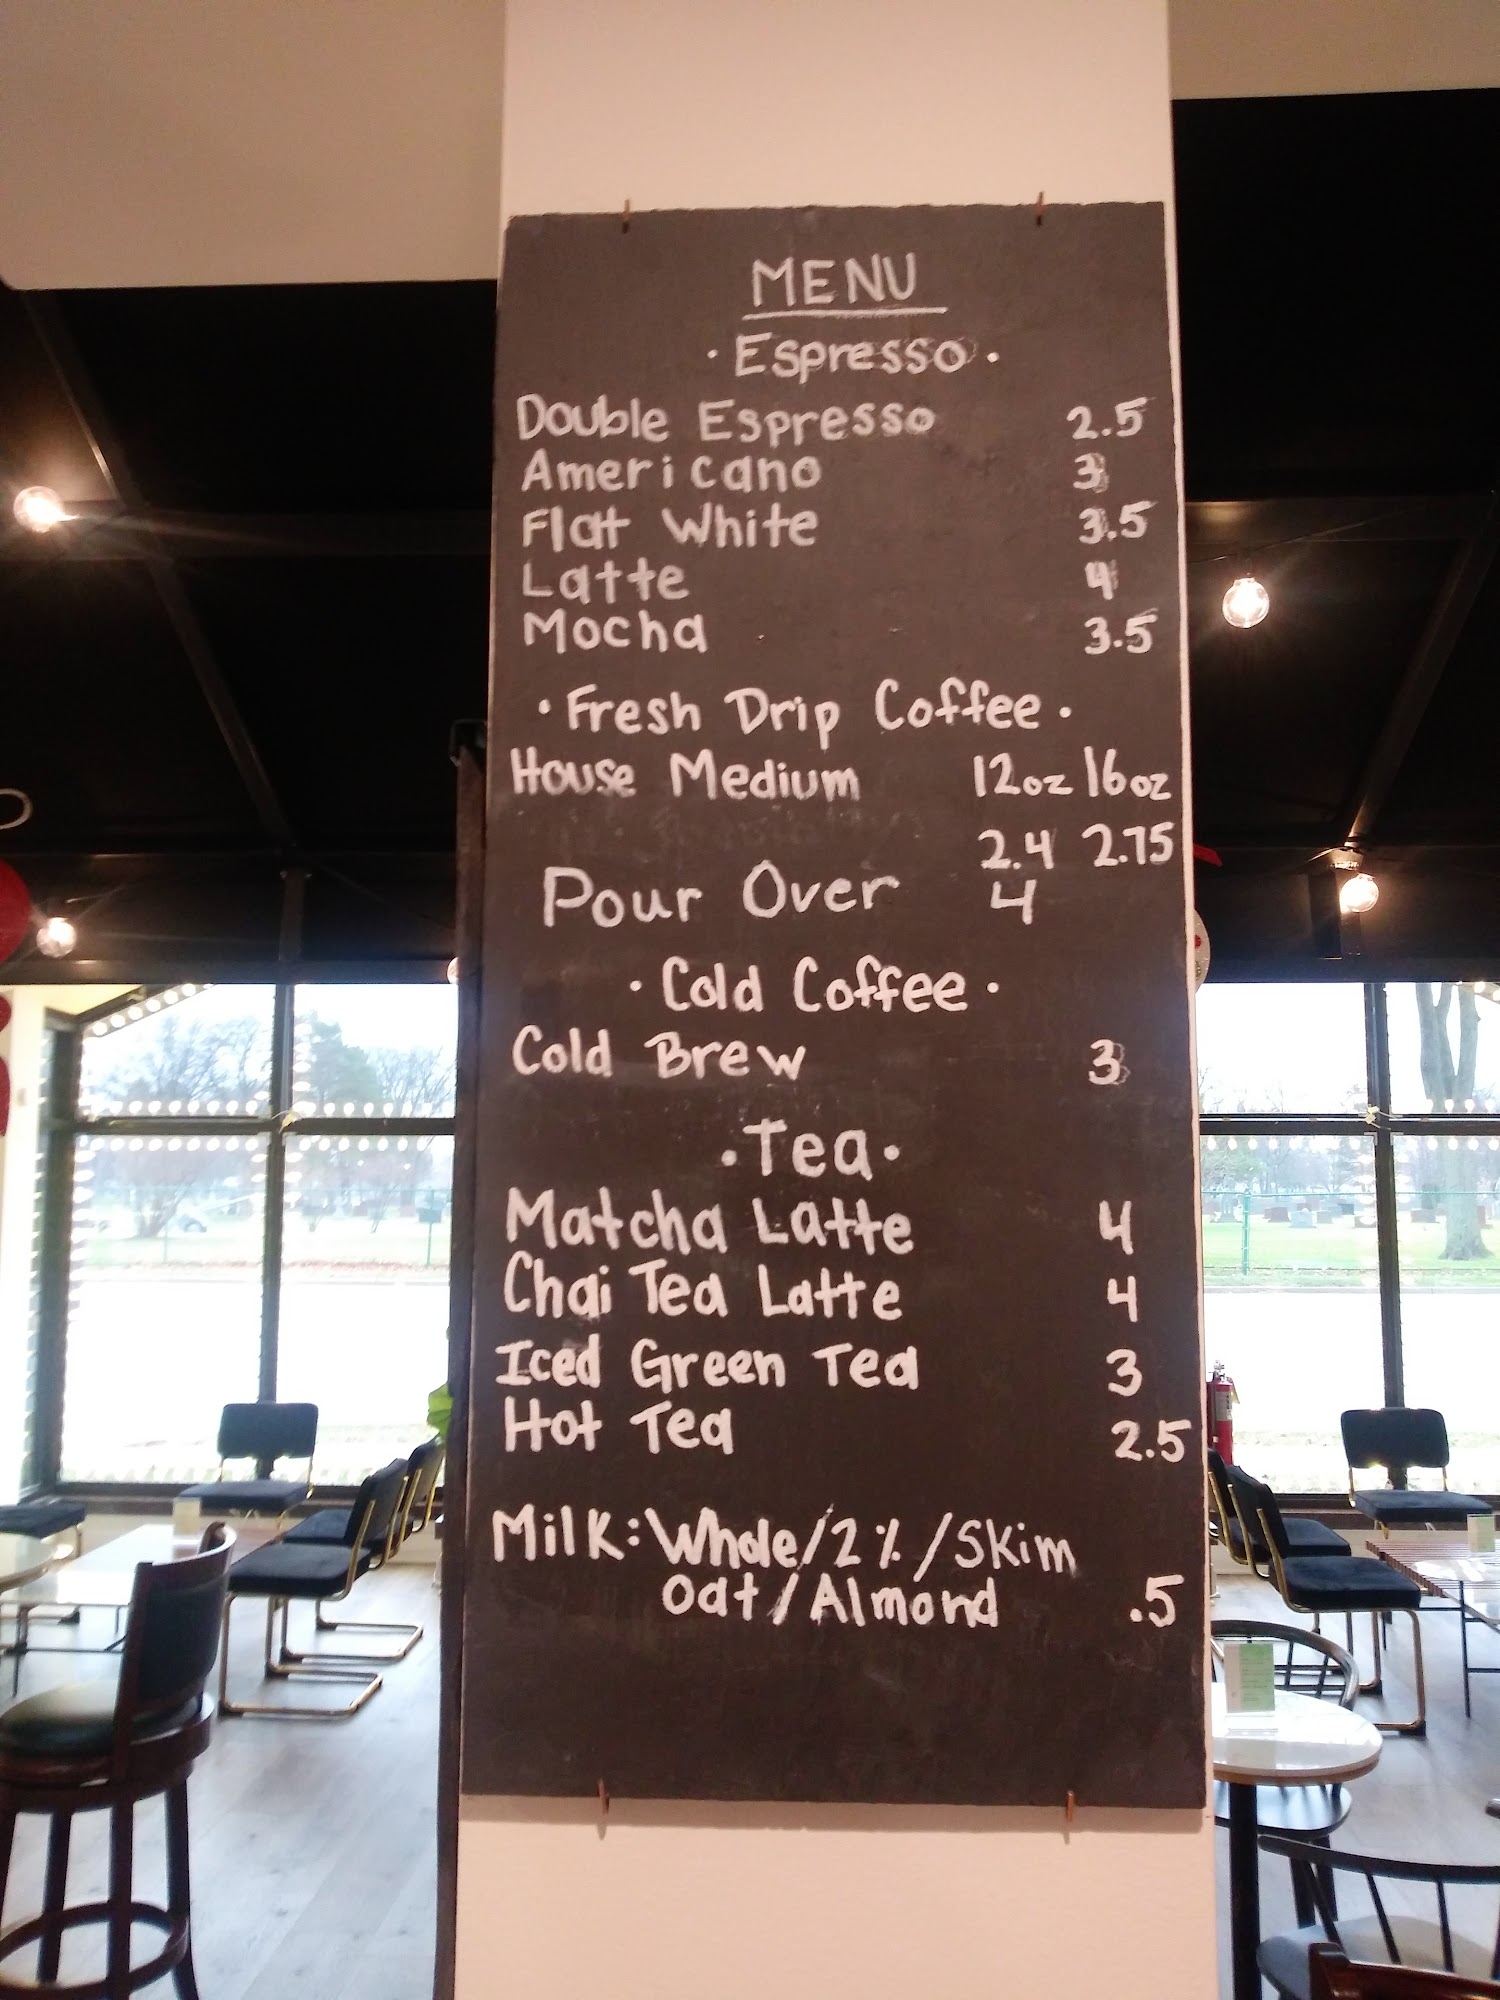 MENU
· Espresso ·
Double Espresso 2.5
Americano 3
Flat White 3.5
Latte 4
Mocha 3.5
· Fresh Drip Coffee ·
House Medium 12oz 16oz
2.4 2.75
Pour Over 4
· Cold Coffee ·
Cold Brew 3
· Tea ·
Matcha Latte 4
Chai Tea Latte 4
Iced Green Tea 3
Hot Tea 2.5
Milk: Whole/2%/Skim
Oat/Almond .5